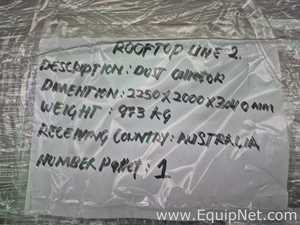 ROOFTOP LINE 2.
DESCRIPTION: DUST COLLECTOR
DIMENTION: 2250X2000X3000mm
WEIGHT: 973 KG
RECEIVING COUNTRY: AUSTRALIA
NUMBER Pallet: 1
www.EquipNet.com